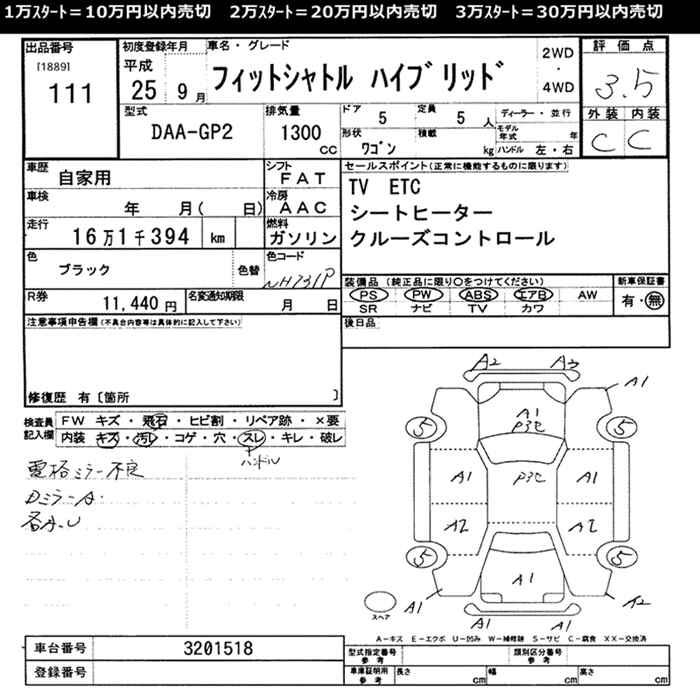 1万ｽﾀｰﾄ＝10万円以内売切　2万ｽﾀｰﾄ＝20万円以内売切　3万ｽﾀｰﾄ＝30万円以内売切
出品番号 初度登録年月 車名・グレード 評価点
[1889] 平成 2WD
111 25 9月 フィットシャトル ハイブリッド ・ 3.5
4WD
型式 排気量 ドア 5 定員 5人 ディーラー・並行 外装 内装
DAA-GP2 1300cc 形状 ワゴン 積載 kg モデル年式 年 C C
ハンドル 左・右
車歴 自家用 シフト FAT セールスポイント(正常に機能するものに限ります)
車検 年 月( 日) 冷房 AAC TV ETC
走行 16万1千394 km 燃料 ガソリン シートヒーター
クルーズコントロール
色 ブラック 色替 色コード NH731P
装備品 (純正品に限り○をつけてください) 新車保証書
PS PW ABS エアB AW 有・無
SR ナビ TV カワ
R券 11,440円 名変通知期限 月 日
後日品
注意事項申告欄(不具合内容等は具体的に記入して下さい)
修復歴 有〔箇所 〕
検査員記入欄 FW キズ・飛石・ヒビ割・リペア跡・×要
内装 キズ・汚レ・コゲ・穴・スレ・キレ・破レ
ハンドル
電格ミラー不良
DミラーA・
各A、U
A2 A3
A1
A1
P3C
5 5
A1 P3C A1
A2 A2
5 5
A1
A1 A2
A1 A1
スペア
A－キズ E－エクボ U－凹み W－補修跡 S－サビ C－腐食 XX－交換済
車台番号 3201518 型式指定番号 参考 類別区分番号 参考
登録番号 車庫証明用 参考 長さ cm 幅 cm 高さ cm